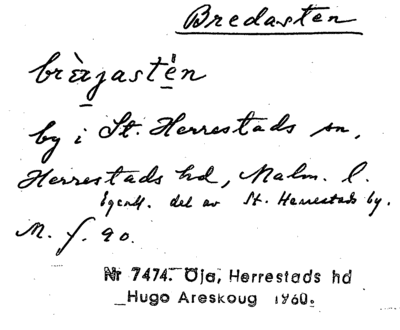 Bredasten
brèi̯ɐgastèn
by i St. Herrestads sn,
Herrestads hd, Malm. l.
Egentl. del av St. Herrestads by.
M. f. 90.
Nr 7474. Öja, Herrestads hd
Hugo Areskoug 1960.